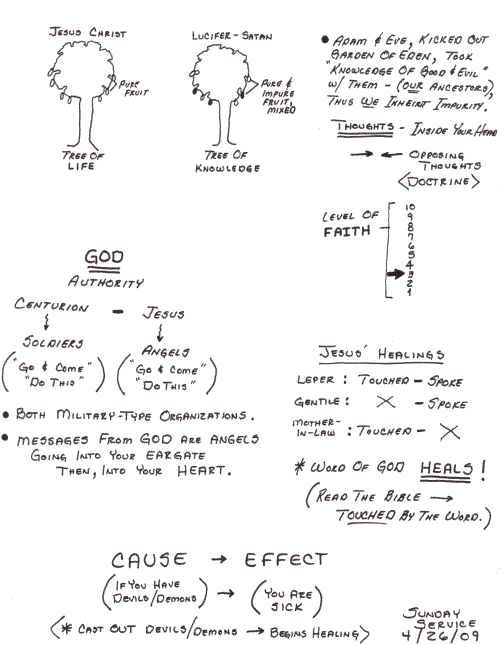 JESUS CHRIST
PURE
FRUIT
TREE OF
LIFE
LUCIFER-SATAN
PURE &
IMPURE
FRUIT,
MIXED
TREE OF
KNOWLEDGE
• ADAM & EVE, KICKED OUT
GARDEN OF EDEN, TOOK
"KNOWLEDGE OF GOOD & EVIL"
W/ THEM - (OUR ANCESTORS),
THUS WE INHERIT IMPURITY.
THOUGHTS - INSIDE YOUR HEAD
→ ← OPPOSING
THOUGHTS
<DOCTRINE>
LEVEL OF
FAITH
10
9
8
7
6
5
4
3
2
1
GOD
AUTHORITY
CENTURION - JESUS
SOLDIERS
("GO & COME"
"DO THIS")
ANGELS
("GO & COME"
"DO THIS")
• BOTH MILITARY-TYPE ORGANIZATIONS.
• MESSAGES FROM GOD ARE ANGELS
GOING INTO YOUR EARGATE
THEN, INTO YOUR HEART.
JESUS' HEALINGS
LEPER : TOUCHED - SPOKE
GENTILE : X - SPOKE
MOTHER-
IN-LAW : TOUCHED - X
* WORD OF GOD HEALS!
(READ THE BIBLE →
TOUCHED BY THE WORD.)
CAUSE → EFFECT
(IF YOU HAVE
DEVILS/DEMONS) → (YOU ARE
SICK)
<* CAST OUT DEVILS/DEMONS → BEGINS HEALING>
SUNDAY
SERVICE
4/26/09